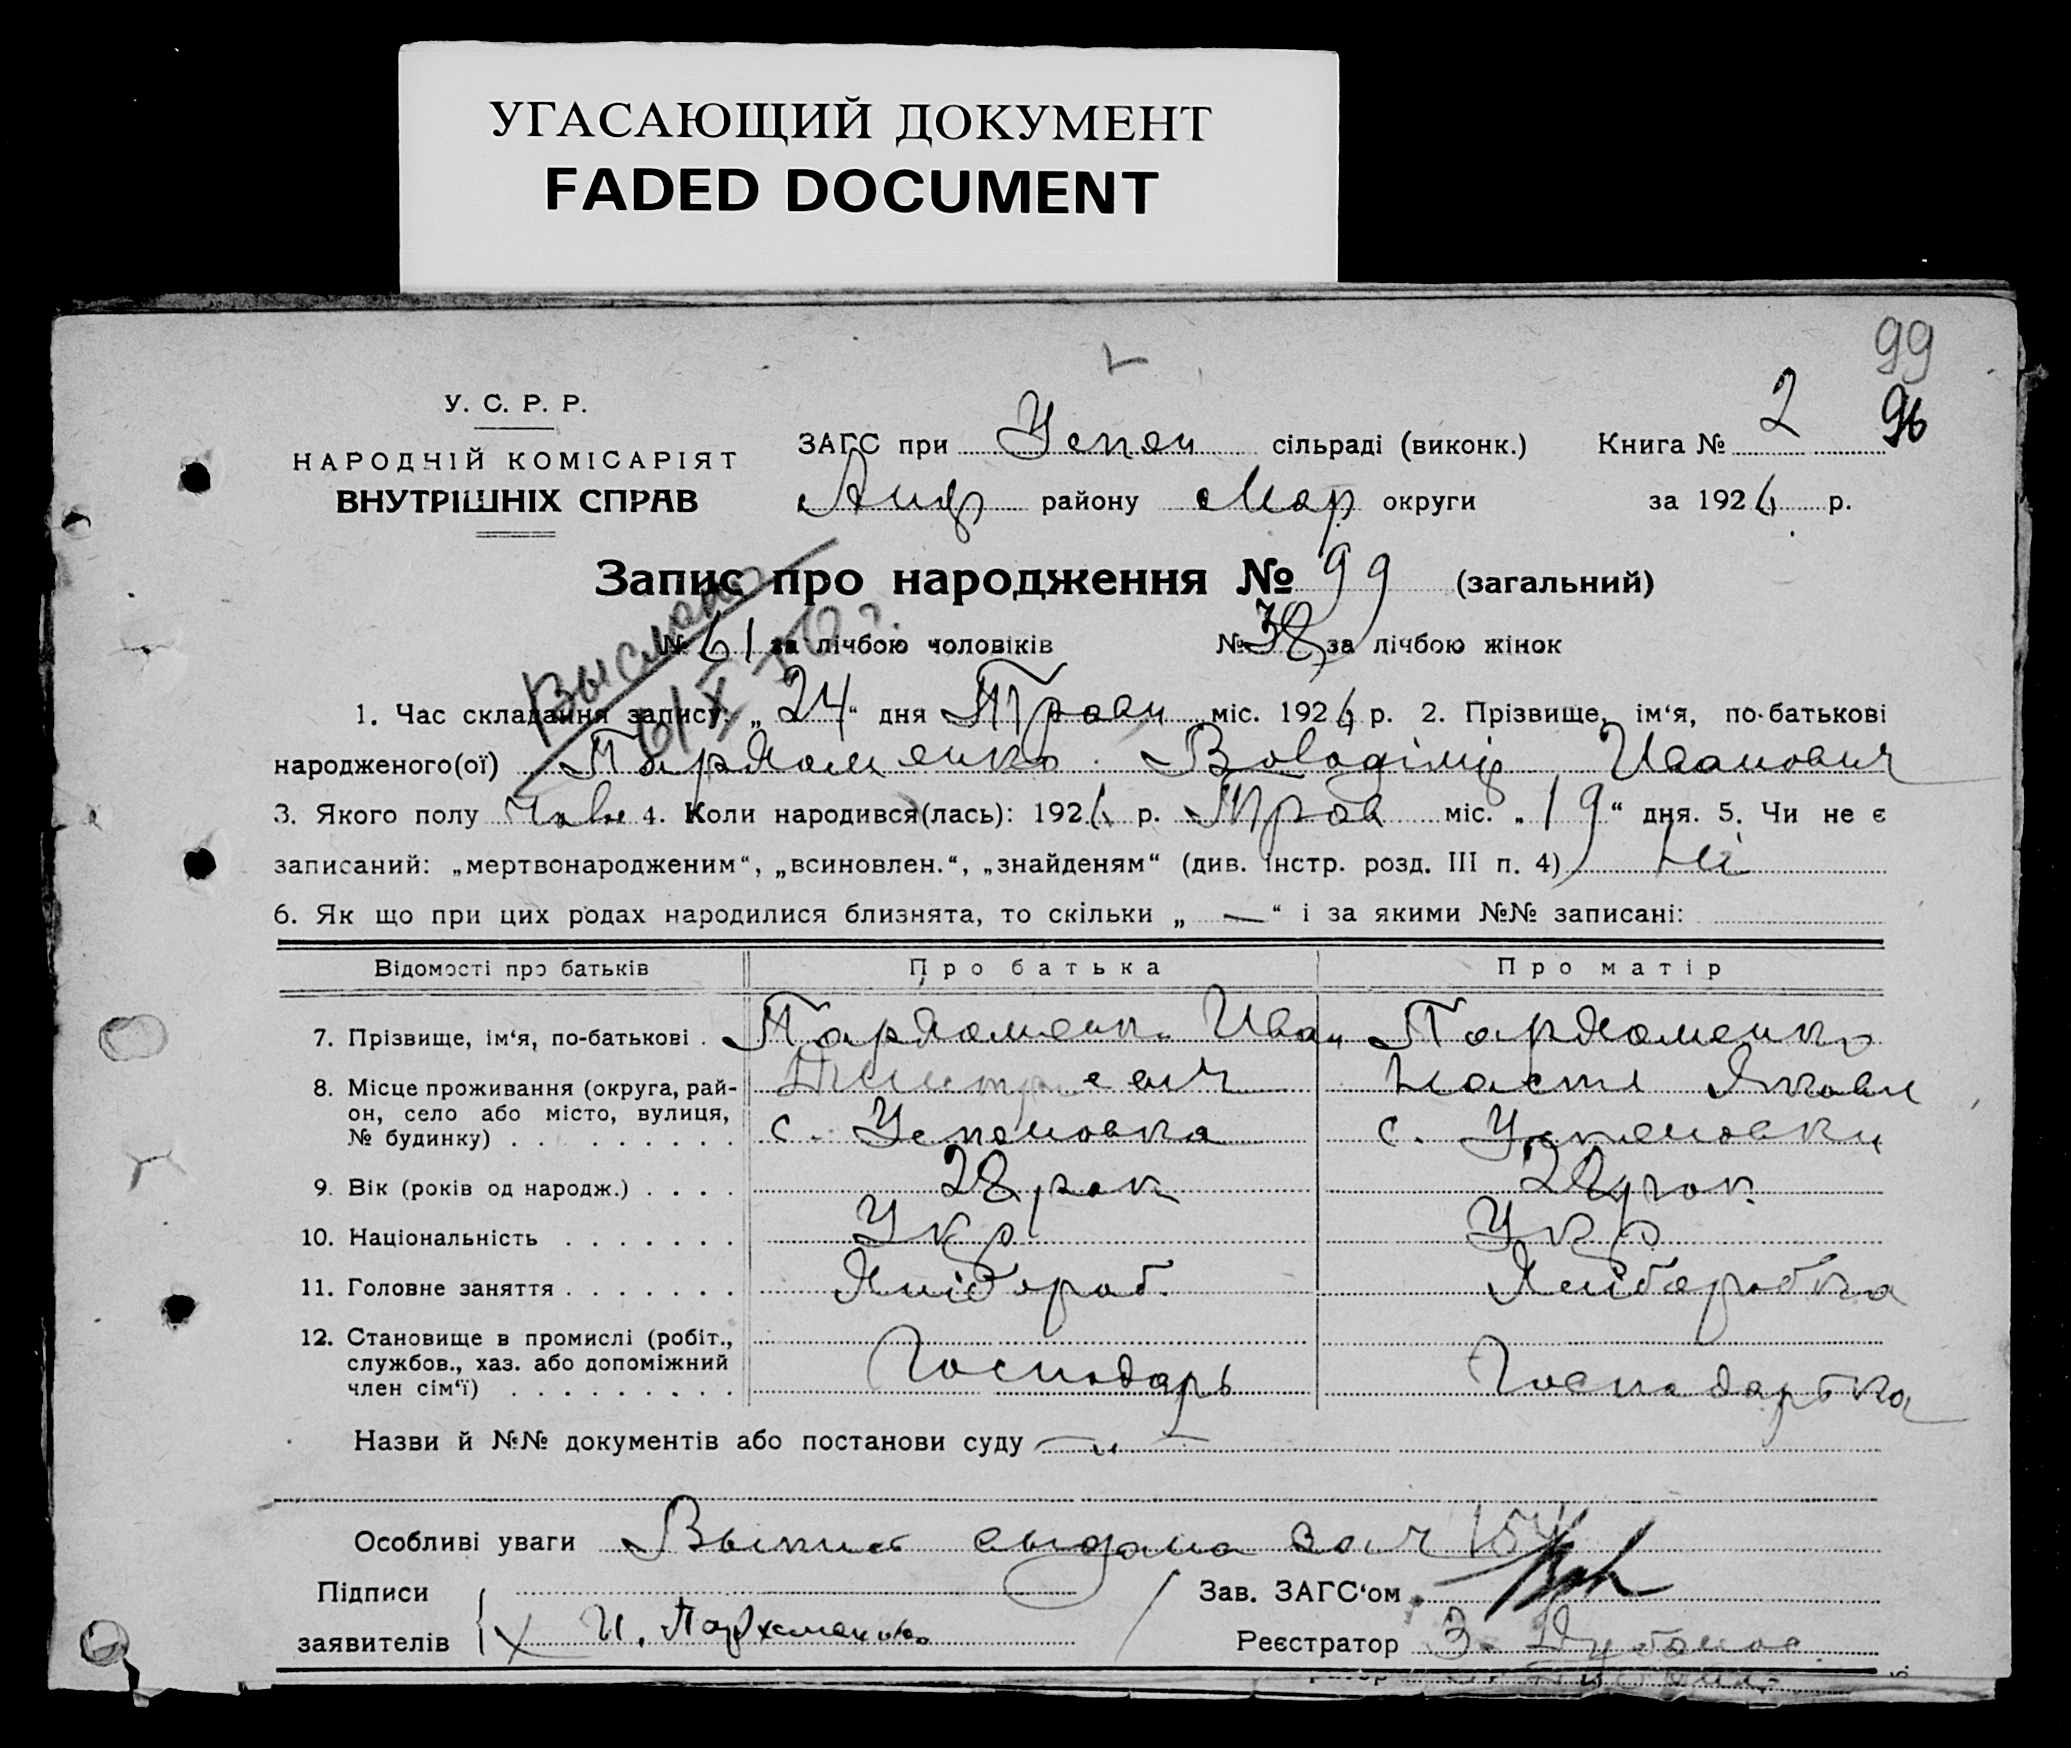 УГАСАЮЩИЙ ДОКУМЕНТ
FADED DOCUMENT
99
У. С. Р. Р.
НАРОДНІЙ КОМІСАРІЯТ
ВНУТРІШНІХ СПРАВ
ЗАГС при Успен сільраді (виконк.) Книга № 2 96
района Мар округи за 1926 р.
Запис про народження № 99 (загальний)
№ 61 за лічбою чоловіків № 38 за лічбою жінок
Выслано
1. Час складання запису: „24“ дня Трав міс. 1926 р. 2. Прізвище, ім‘я, по-батькові
народженого(ої) Пархоменко Володімір Иванович
3. Якого полу Чолов 4. Коли народився(лась): 1926 р. Трав міс. „19“ дня. 5. Чи не є
записаний: „мертвонародженим“, „всиновлен.“, „знайденям“ (див. інстр. розд. III п. 4) Ні
6. Як що при цих родах народилися близнята, то скільки „ — “ і за якими №№ записані:
Відомості про батьків Про батька Про матір
7. Прізвище, ім‘я, по-батькові . Пархоменко Иван Пархоменко
Дмитриевич Настя Яковл
8. Місце проживання (округа, рай-
он, село або місто, вулиця,
№ будинку) . . . . . . . . . с. Успеновка с. Успеновки
9. Вік (років од народж.) . . . . 28 рок 28 рок
10. Національність . . . . . . . Укр Укр
11. Головне заняття . . . . . . . Хлібороб. Хліборобка
12. Становище в промислі (робіт.,
службов., хаз. або допоміжний
член сім‘ї) . . . . . . . . . Господарь Господарька
Назви й №№ документів або постанови суду —
Особливі уваги Выпись выдана
Підписи
заявителів И. Пархоменко
Зав. ЗАГС‘ом
Реєстратор З.